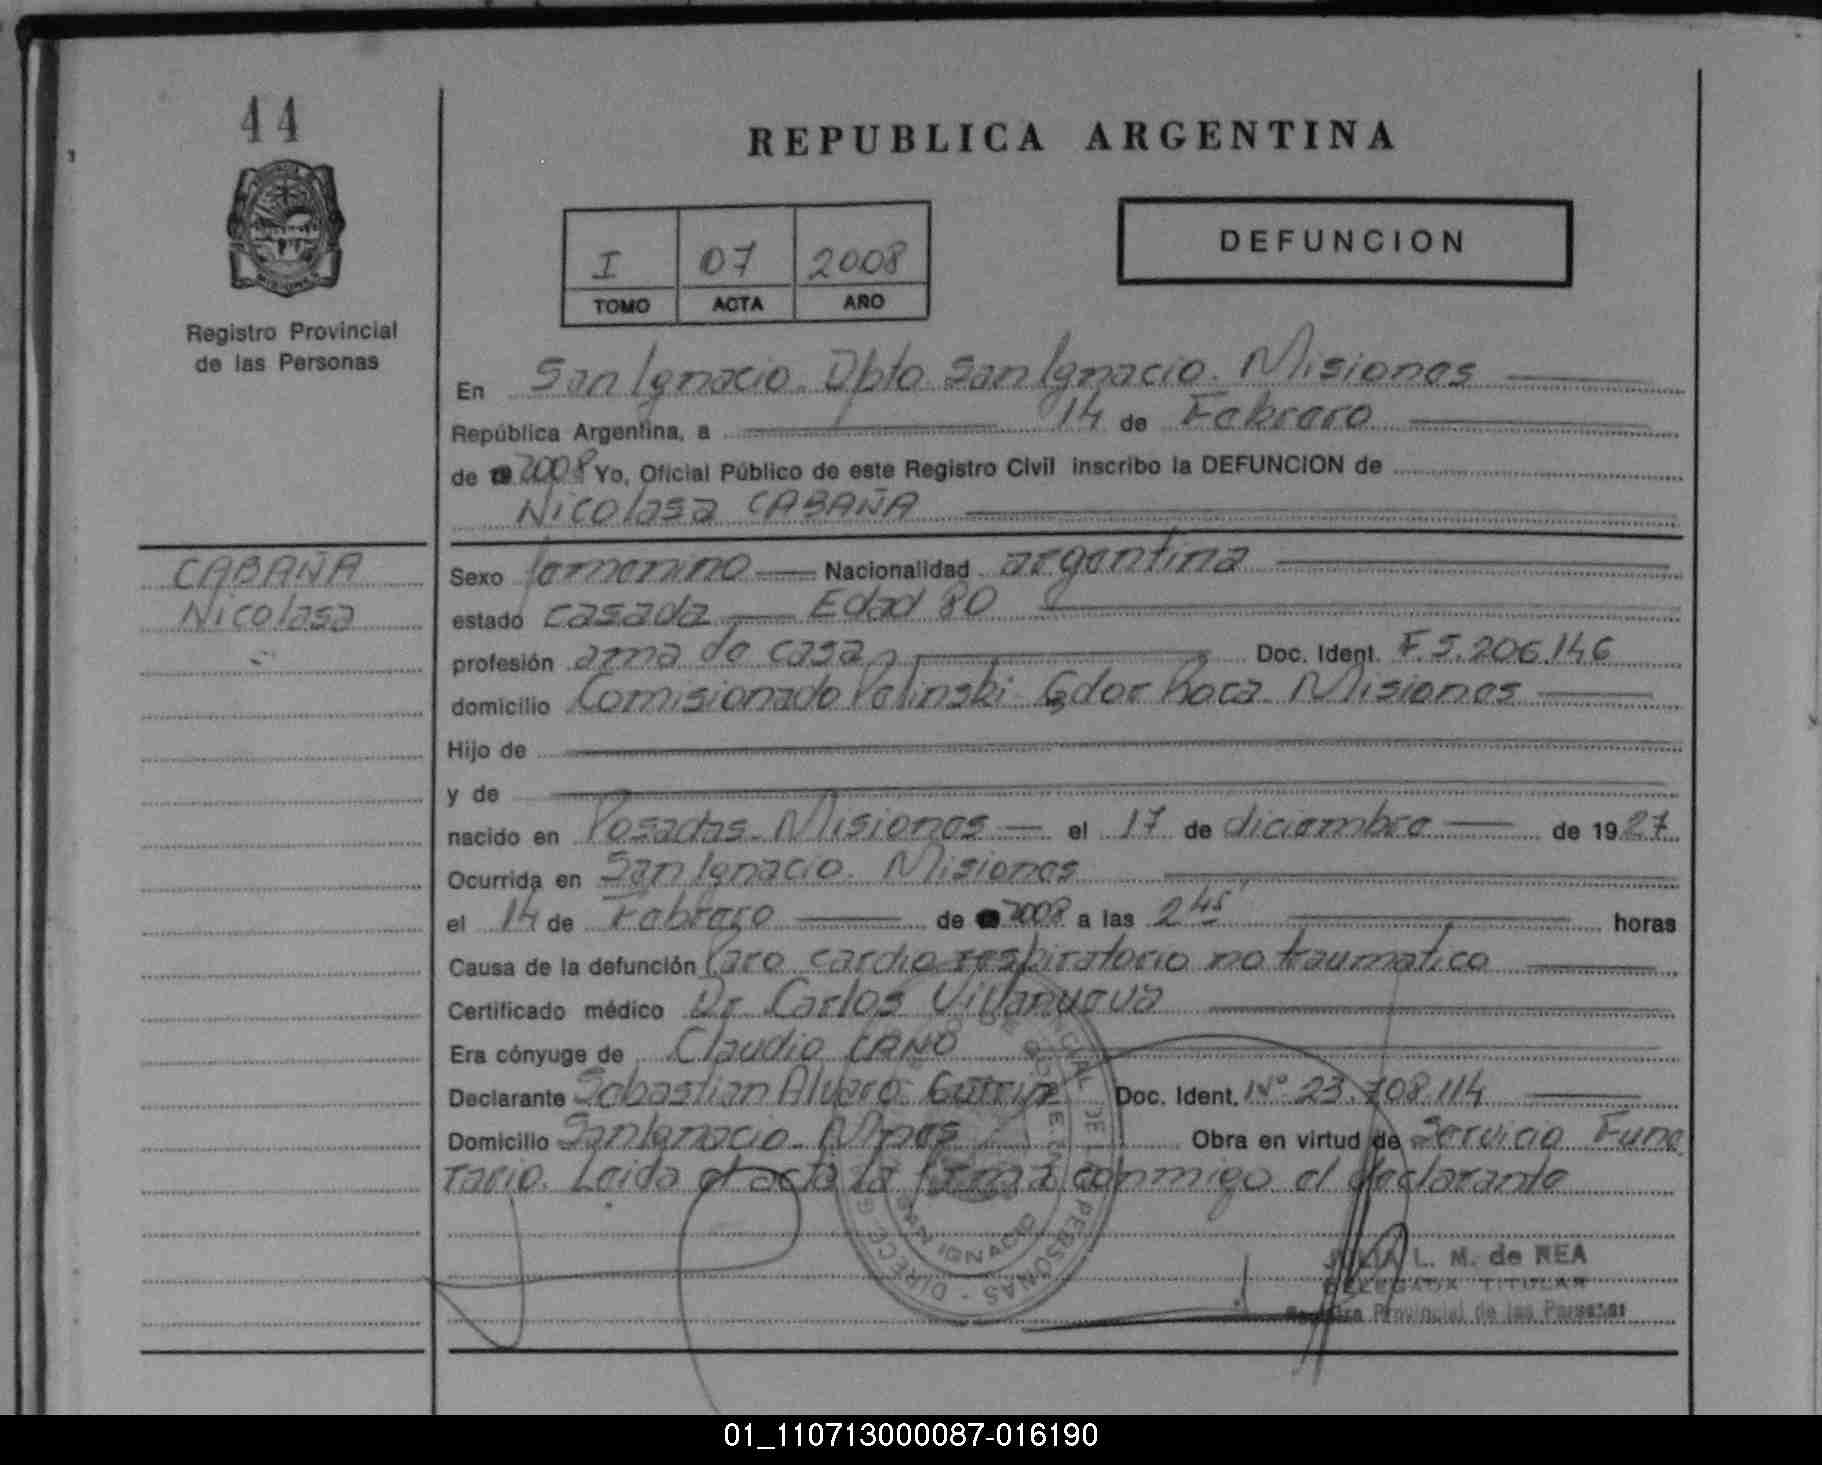 44
REPUBLICA ARGENTINA
I 07 2008
TOMO ACTA AÑO
DEFUNCION
Registro Provincial
de las Personas
En San Ignacio. Dpto San Ignacio. Misiones
República Argentina, a 14 de Febrero
de 2008 Yo, Oficial Público de este Registro Civil inscribo la DEFUNCION de
Nicolasa CABAÑA
CABAÑA
Nicolasa
Sexo femenino Nacionalidad argentina
estado casada Edad 80
profesión ama de casa Doc. Ident. F.5.206.146
domicilio Comisionado Polinski Gdor Roca Misiones
Hijo de
y de
nacido en Posadas. Misiones el 17 de diciembre de 1927
Ocurrida en San Ignacio. Misiones
el 14 de Febrero de 2008 a las 2 45 horas
Causa de la defunción Paro cardio respiratorio no traumatico
Certificado médico Dr. Carlos Villanueva
Era cónyuge de Claudio CANO
Declarante Sebastian Alvaro Doc. Ident. Nº 23.708.114
Domicilio San Ignacio. Mnes Obra en virtud de Servicio Fune
rario. Leida el acta la firma conmigo el declarante
SAN IGNACIO
PERSONAS - DIRECC
JULIA L. M. de REA
DELEGADA TITULAR
Registro Provincial de las Personas
01_110713000087-016190